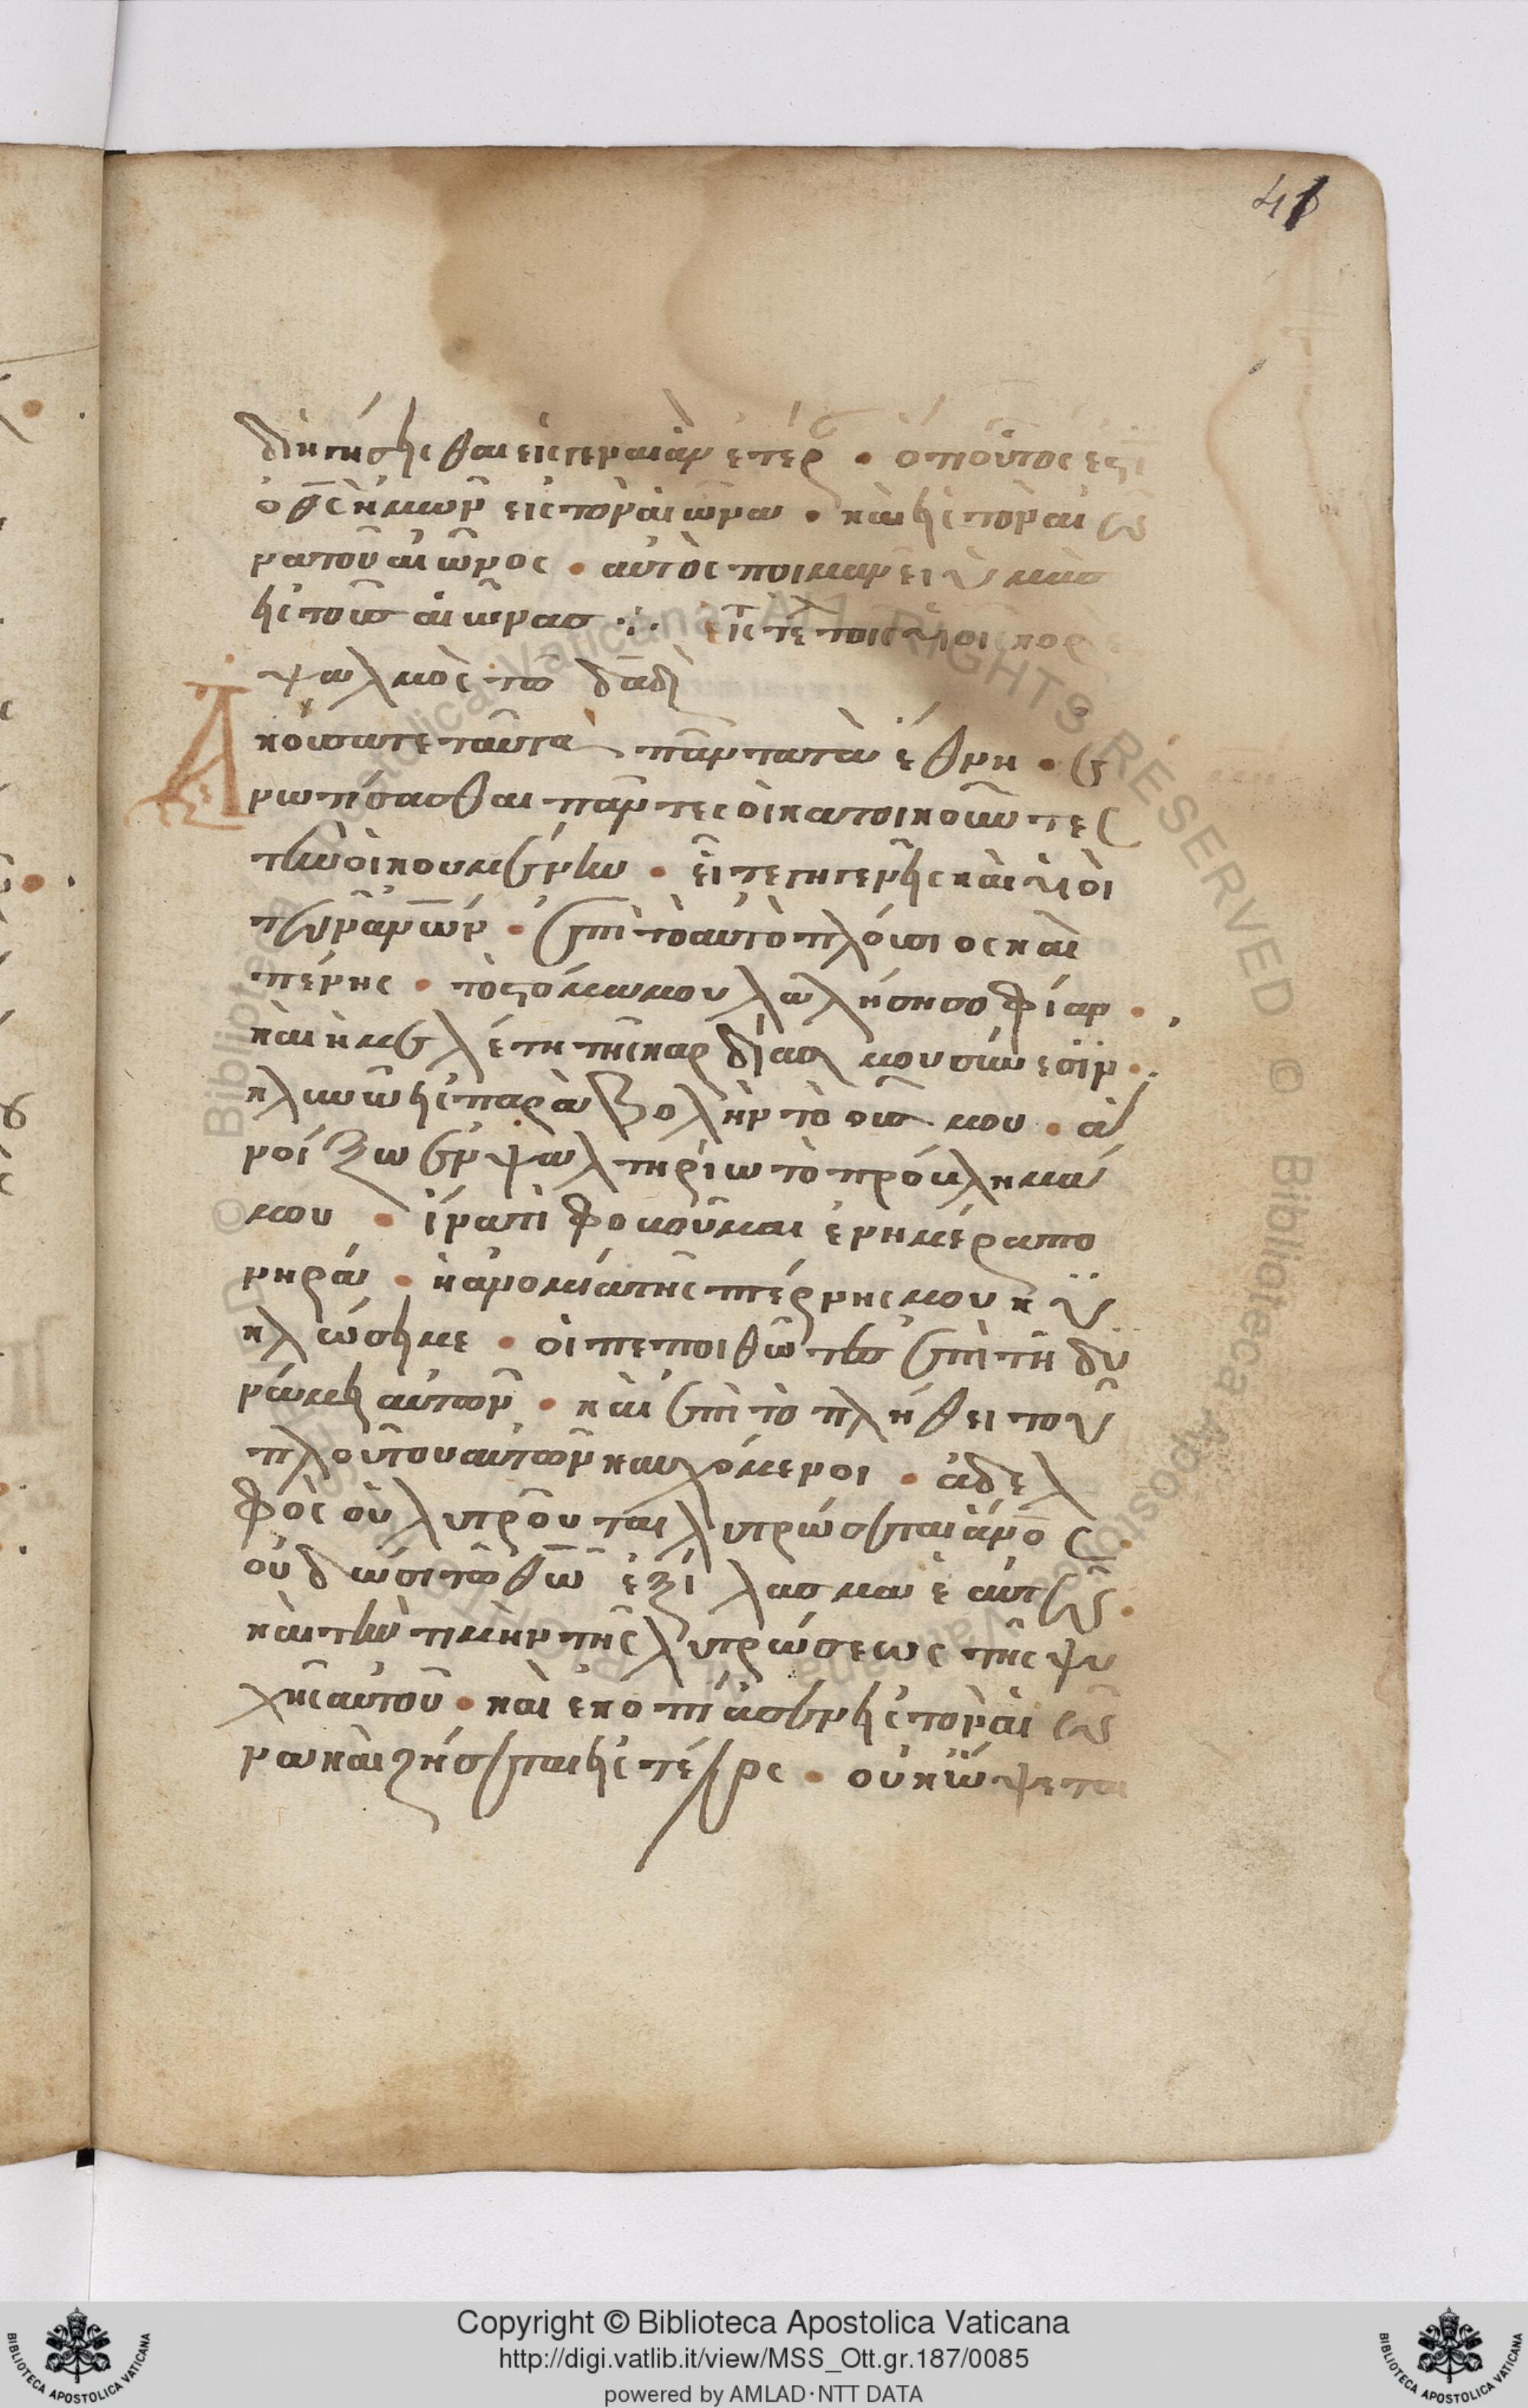 41
διηγήσησθαι εἰς γενεὰν ἑτέρ · ὅτι οὗτος ἐστὶ
ὁ θς ἡμῶν εἰς τὸν αἰῶνα · καὶ εἰς τὸν αἰῶ
να τοῦ αἰῶνος · αὐτὸς ποιμανεῖ ὑμὰσ
εἰς τοὺσ αἰῶνασ ⁘ εἰς τ τε τοῖς υἱοῖς κορε
ψαλμὸς τῶ δαδ
Ἀκούσατε ταῦτα πάντα τὰ ἔθνη · ἐ
νωτίσασθαι πάντες οἱ κατοικοῦντες
τὴν οἰκουμένην · εἴ τε γηγενεῖς καὶ υἱοὶ
τῶν ἀνων · ἐπὶ τὸ αὐτὸ πλούσιος καὶ
πένης · τὸ στόμα μου λαλήση σοφίαν ·
καὶ ἡ μελέτη τῆς καρδίασ μου σύνεσϊν ·
κλινῶ εἰς παραβολὴν τὸ οὖσ μου · ἀ
νοίξω ἐν ψαλτηρίω τὸ πρόβλημά
μου · ἵνα τί φοβοῦμαι ἐν ημέρα πο
νηρά · ἡ ἀνομία τῆς πτέρνης μου κϋ
κλώσει με · οἱ πεποιθῶτεσ ἐπὶ τῆ δυ
νάμει αὐτῶν · καὶ ἐπὶ τὸ πλήθει τοῦ
πλούτου αὐτῶν καυχόμενοι · ἀδελ
φὸς οὐ λυτροῦται λυτρώσεται ἀνος
οὐ δώσι τῶ θω ἐξίλασμα ἑαυτῶ ·
καὶ τὴν τιμὴν τῆς λυτρώσεως τῆς ψυ
χῆς αὐτοῦ · καὶ ἐκοπίασεν εἰς τὸν αἰῶ
να καὶ ζήσεται εἰς τέλος · οὐκ ὄψεται
Copyright © Biblioteca Apostolica Vaticana
http://digi.vatlib.it/view/MSS_Ott.gr.187/0085
powered by AMLAD·NTT DATA